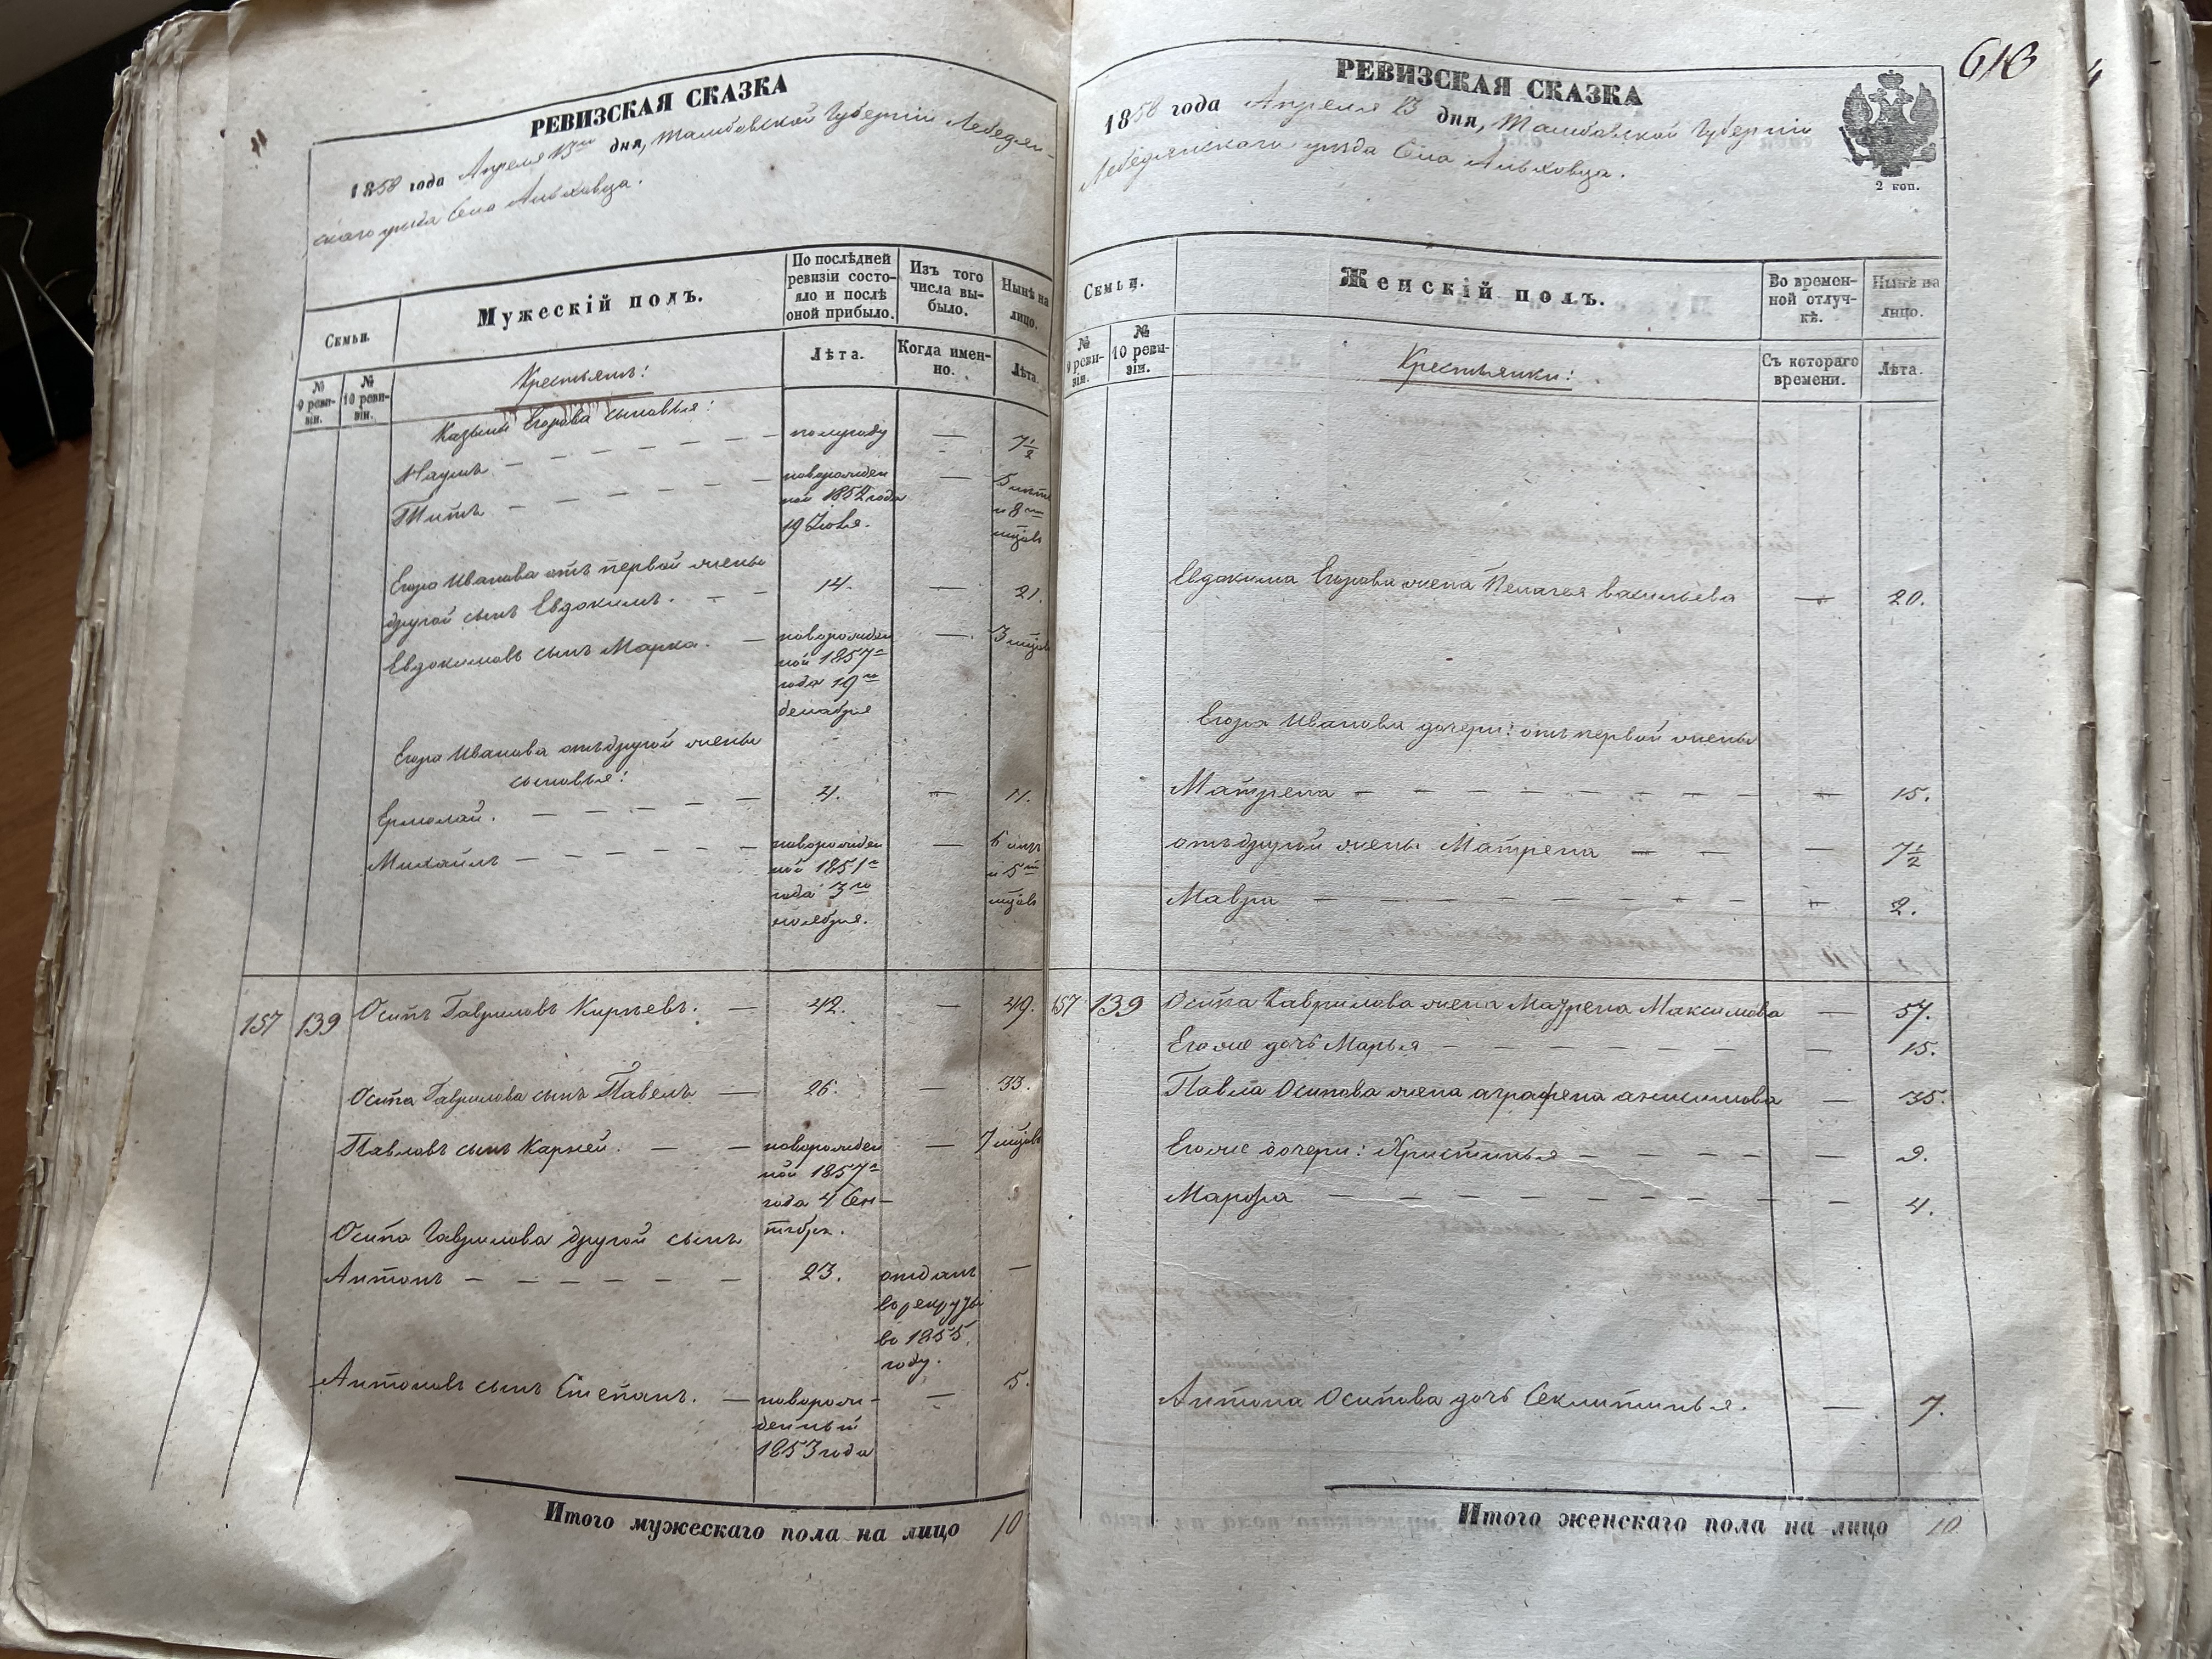 РЕВИЗСКАЯ СКАЗКА
1858 года Апреля 13го дня, Тамбовской Губернiи Лебедян-
скаго уезда Села Ольховца.
Семьи.
Мужескiй полъ.
По послѣдней ревизiи состо-яло и послѣ оной прибыло.
Изъ того числа вы-было.
Нынѣ на лицо.
№ 9 реви-зiи.
№ 10 реви-зiи.
Крестьянъ:
Лѣта.
Когда имен-но.
Лѣта.
Казьмы Егорова сыновья:
Наумъ — — — — — полугоду — 7½
Титъ — — — — — новорожден
ной 1852 года
19 Iюля. — 5 летъ
и 8м
мцовъ
Егора Иванова отъ первой жены
другой сынъ Евдокимъ. — — 14. — 21.
Евдокимовъ сынъ Марка. — новорожден
ной 1857го
года 19го
декабря — 3 мцов
Егора Иванова отъ другой жены
сыновья:
Ермолай. — — — — 4. — 11.
Михайлъ — — — — — новорожден
ной 1851го
года 3го
ноября. — 6 летъ
и 5м
мцовъ
157 139 Осипъ Гавриловъ Кирѣевъ. — 42. — 49.
Осипа Гаврилова сынъ Павелъ — 26. — 33.
Павловъ сынъ Карней. — — новорожден
ной 1857го
года 4 Сен-
тября. — 7 мцовъ
Осипа Гаврилова другой сынъ
Антонъ — — — — — — 23. отданъ
въ рекруты
въ 1855
году. —
Антоновъ сынъ Степанъ. — новорож-
денный
1853 года — 5.
Итого мужескаго пола на лицо 10
613
РЕВИЗСКАЯ СКАЗКА
1858 года Апреля 13 дня, Тамбовской Губернiи
Лебедянскаго уезда Села Ольховца.
2 коп.
Семьи.
Женскiй полъ.
Во времен-ной отлуч-кѣ.
Нынѣ на лицо.
№ 9 реви-зiи.
№ 10 реви-зiи.
Крестьянки:
Съ котораго времени.
Лѣта.
Евдокима Егорова жена Пелагея Васильева — 20.
Егора Иванова дочери: отъ первой жены
Матрена — — — — — — — — 15.
отъ другой жены Матрена — — — 7½
Мавра — — — — — — — — 2.
157 139 Осипа Гаврилова жена Матрена Максимова — 57.
Его же дочь Марья — — — — — — 15.
Павла Осипова жена аграфена анисимова — 35.
Его же дочери: Христинья — — — — — 9.
Марфа — — — — — — — — 4.
Антона Осипова дочь Секлитинья. — 7.
Итого женскаго пола на лицо 10.